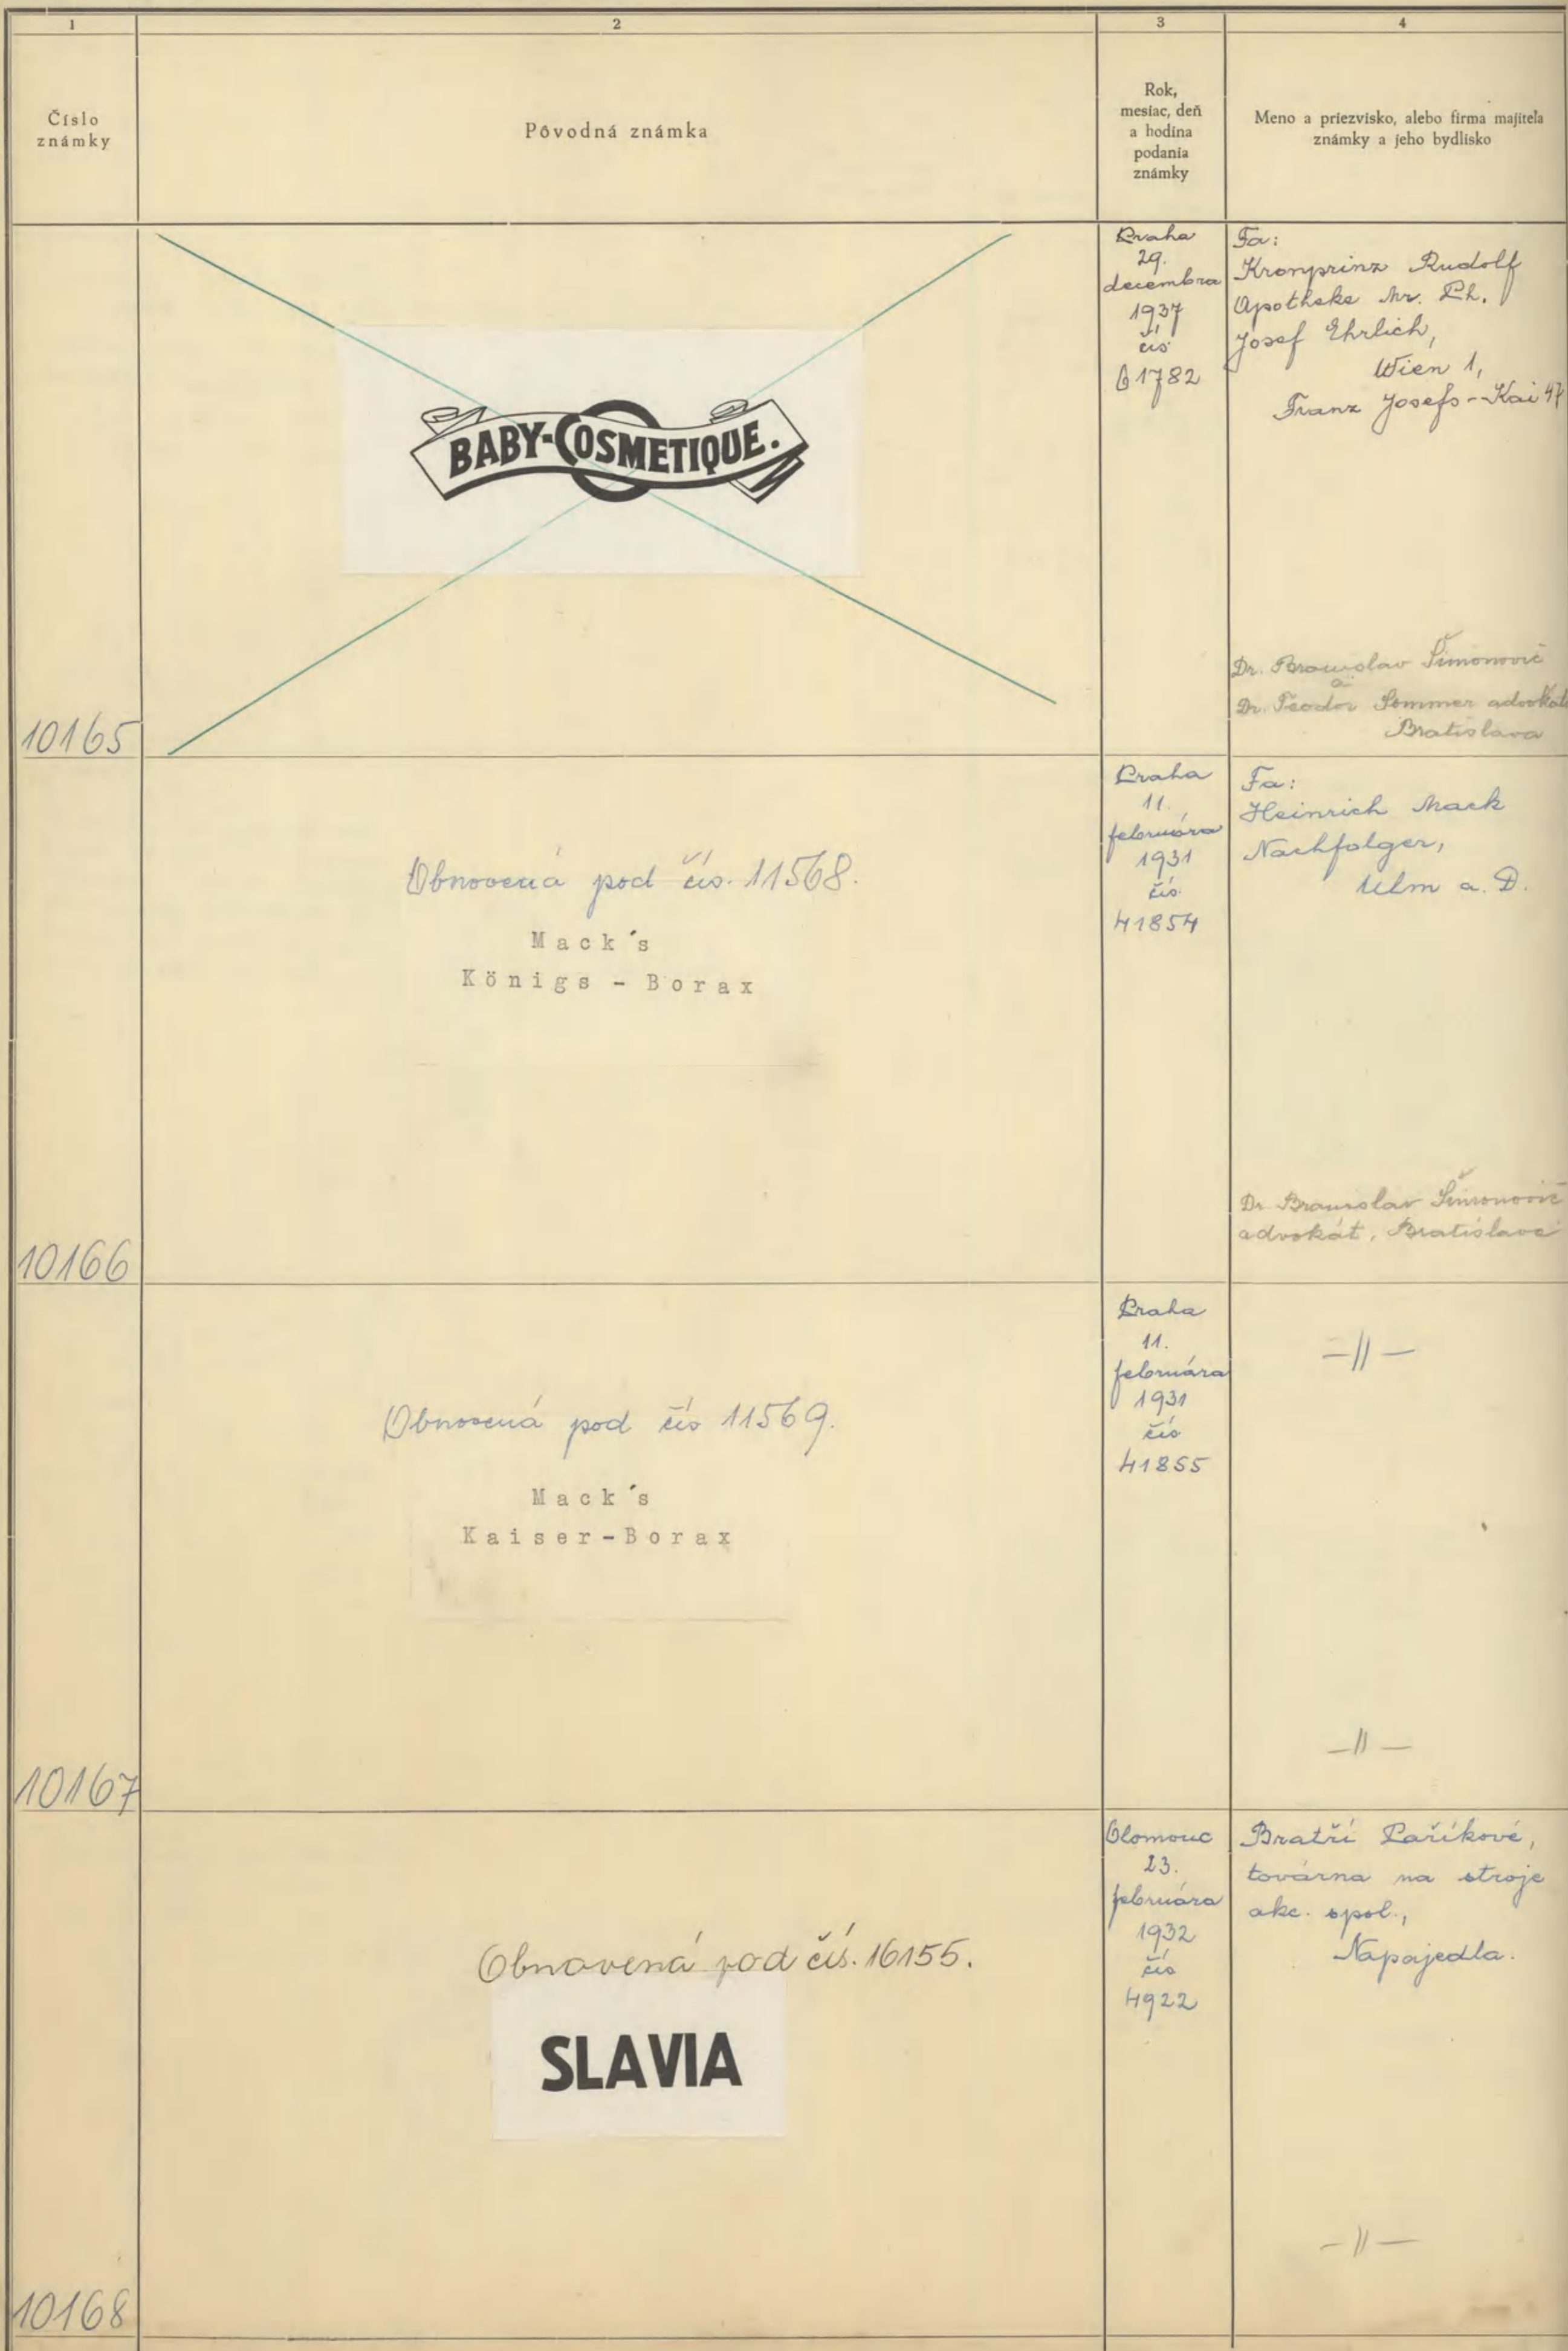 1
2
3
4
Číslo
známky
Pôvodná známka
Rok,
mesiac, deň
a hodina
podania
známky
Meno a priezvisko, alebo firma majiteľa
známky a jeho bydlisko
10165
BABY-COSMETIQUE.
Praha
29.
decembra
1937
čís
61782
Fa:
Kronprinz Rudolf
Apotheke Mr. Ph.
Josef Ehrlich,
Wien 1,
Franz Josefs-Kai 47
Dr. Branislav Šimonovič
a
Dr. Teodor Sommer advokáti
Bratislava
10166
Obnovená pod čís. 11568.
Mack´s
Königs - Borax
Praha
11.
februára
1931
čís.
41854
Fa:
Heinrich Mack
Nachfolger,
Ulm a. D.
Dr Branislav Šimonovič
advokát, Bratislava
10167
Obnovená pod čís 11569.
Mack´s
Kaiser-Borax
Praha
11.
februára
1931
čís
41855
—||—
—||—
10168
Obnovená pod čís. 16155.
SLAVIA
Olomouc
23.
februára
1932
čís
4922
Bratří Paříkové,
továrna na stroje
akc. spol.,
Napajedla.
—||—